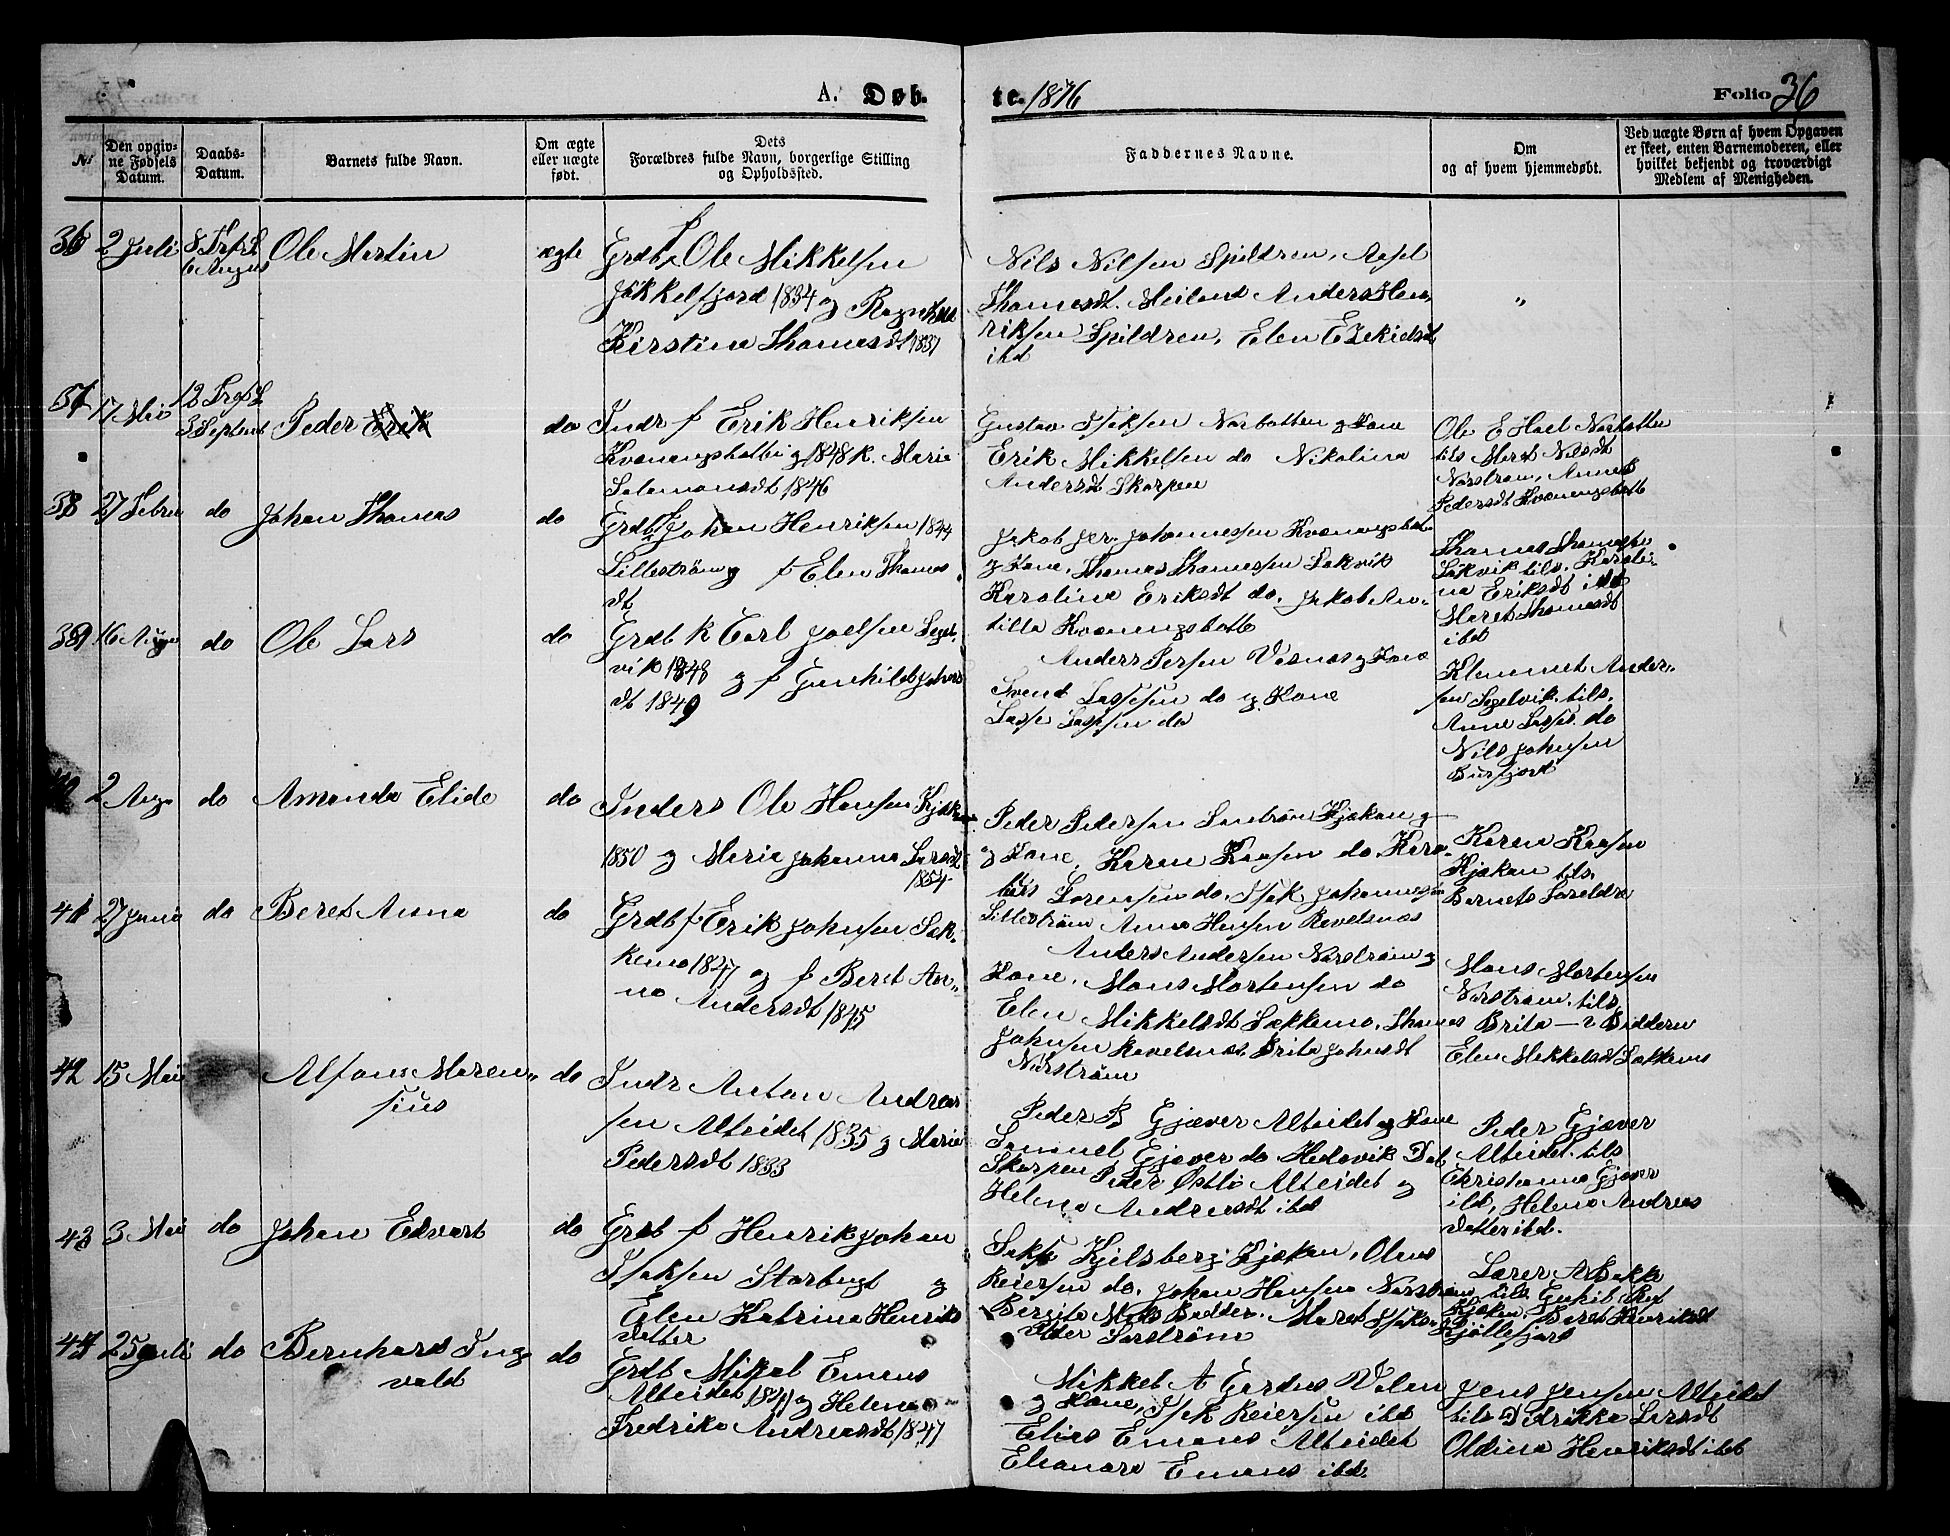 A. Døb.
te. 1876
Folio 36
No
Den opgiv-
ne Fødsels
Datum.
Daabs-
Datum.
Barnets fulde Navn.
Om ægte
eller uægte
født.
Dets
Forældres fulde Navn, borgerlige Stilling
og Opholdssted.
Faddernes Navne.
Om
og af hvem hjemmedøbt.
Ved uægte Børn af hvem Opgaven
er skeet, enten Barnemoderen, eller
hvilket bekjendt og troværdigt
Medlem af Menigheden.
36 2 Juli
Ole Martin
ægte
Grdb f Ole Mikkelsen
Jøkkelfjord 1834 og
Kirstine Thomasdt 1837
Nils Nilsen Spildren,
Thomasdt. Meiland Anders Hen
riksen Spildren, Elen Ezekielsdt
ibd
"
37 17 Mai
Septemb
Peder Erik
do
Indr f Erik Henriksen
Kvænangsbotten og 1848 K. Marie
Salamonsdt 1846
Gustav Isaksen Norbotten og Kone
Erik Mikkelsen do Nikolina
Andersdt Skorpen
Ole E Hael Norbotten
tils Maret Nilsdt
Norstrøm, Anne
Pedersdt Kvænangsbotn
38 27 Febru do
Johan Thomas
do
Grdb f Johan Henriksen 1844
Lillestrøm og f Elen Thomas
dt
Jakob Johannessen Kvænangsbotn
og Kone, Thomas Thomassen Søkvik
Karolina Eriksdt do. Jakob An-
tilla Kvænangsbotn
Thomas Thomassen
Søkvik tils. Karoli-
na Eriksdt ibd
Maret Thomasdt
ibd
39 16 Aug do
Ole Lars
do
Grdb K Carl Joelsen Seget-
vik 1848 og f Gunhild Johns
dt 1849
Anders Persen Vasnæs og Kone
Svend Lassesen do og Kone
Lasse Lassesen do
Klemmet Ander-
sen Segelvik. tils.
Anne Lasses. do
Nils Johnsen
Burfjord
2 Aug do
Amanda Elide
do
Inders Ole Hansen Kjækan
1850 og Marie Johanna Larsdt
1854
Peder Pedersen Sandstrøm Kjækan
og Kone, Karen Kaasen do.
Lorensen do. Isak Johannesen
Lillestrøm Anne Hansen Ravelsnæs
Karen Kaasen
Kjækan tils.
Barnets Foreldre
41 27 Juni do
Beret Anna
do
Grdb f Erik Johnsen Sæk-
kemo 1847 og f Beret An-
na Andersdt 1845
Anders Andersen Norstrøm og
Kone, Mons Mortensen do
Elen Mikkelsdt Sækkemo, Thomas
Johnsen Ravelsnæs Brita Johnsdt
Norstrøm
Mons Mortensen
Norstrøm. tils.
Brita Badderen
Elen Mikkelsdt Sækkemo
42 15 Mai
Alfons Moren-
sius
do
Indr Anton Andrea
sen Alteidet 1835 og Marie
Pedersdt 1833
Peder B Gjæver Alteidet og Kone
Samuel Gjæver do Hedevik
Skorpen Peder Østlo Alteidet og
Helena Andreasdt ibd
Peder Gjæver
Alteidet. tils
Christianna Gjæver
ibd, Helena Andreas
datter ibd.
43 3 Mai do
Johan Edvart
do
Grdb f Henrik Johan
Isaksen Storbugt og
Elen Katrina Henriks
datter
Kjilsberg Kjækan, Olaus
Reiersen do, Johan Hansen Norstrøm
Bergite Badder. Maret Isaks
datter Sorstrøm
Lærer
Kjækan, Beret Henriksdt
Kjøllefjord
44 25 Juli do
Bernhard Ing-
vald
do
Grdb Mikal Emans
Alteidet 1841 og Helena
Fredrika Andreasdt 1847
Mikkel A Gerdus Volen
og Kone, Isak Reiersen ibd
Elias Emans Alteidet
Elianora Emans ibd.
Jens Jensen Alteidet
tils Didrikke Larsdt
Oldina Henriksdt ibd